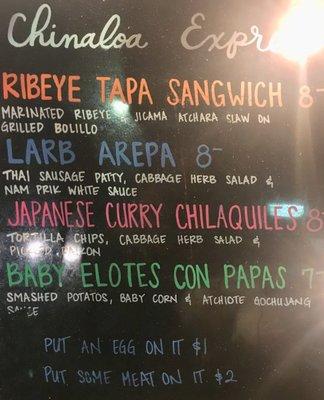 Chinaloa Expre
RIBEYE TAPA SANGWICH 8-
MARINATED RIBEYE & JICAMA ATCHARA SLAW ON
GRILLED BOLILLO
LARB AREPA 8-
THAI SAUSAGE PATTY, CABBAGE HERB SALAD &
NAM PRIK WHITE SAUCE
JAPANESE CURRY CHILAQUILES 8-
TORTILLA CHIPS, CABBAGE HERB SALAD &
BABY ELOTES CON PAPAS 7-
SMASHED POTATOS, BABY CORN & ATCHIOTE GOCHUJANG
SAUCE
PUT AN EGG ON IT $1
PUT SOME MEAT ON IT $2